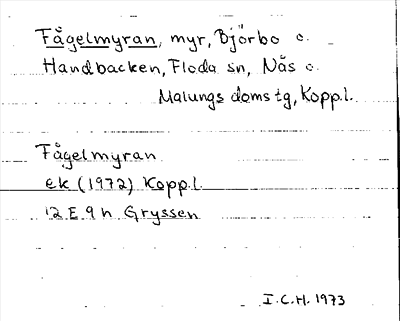 Fågelmyran, myr, Björbo o.
Handbacken, Floda sn, Nås o.
Malungs domstg, Kopp.l.
Fågelmyran
ek (1972) Kopp.l.
12 E 9 h Gryssen
I.C.H. 1973